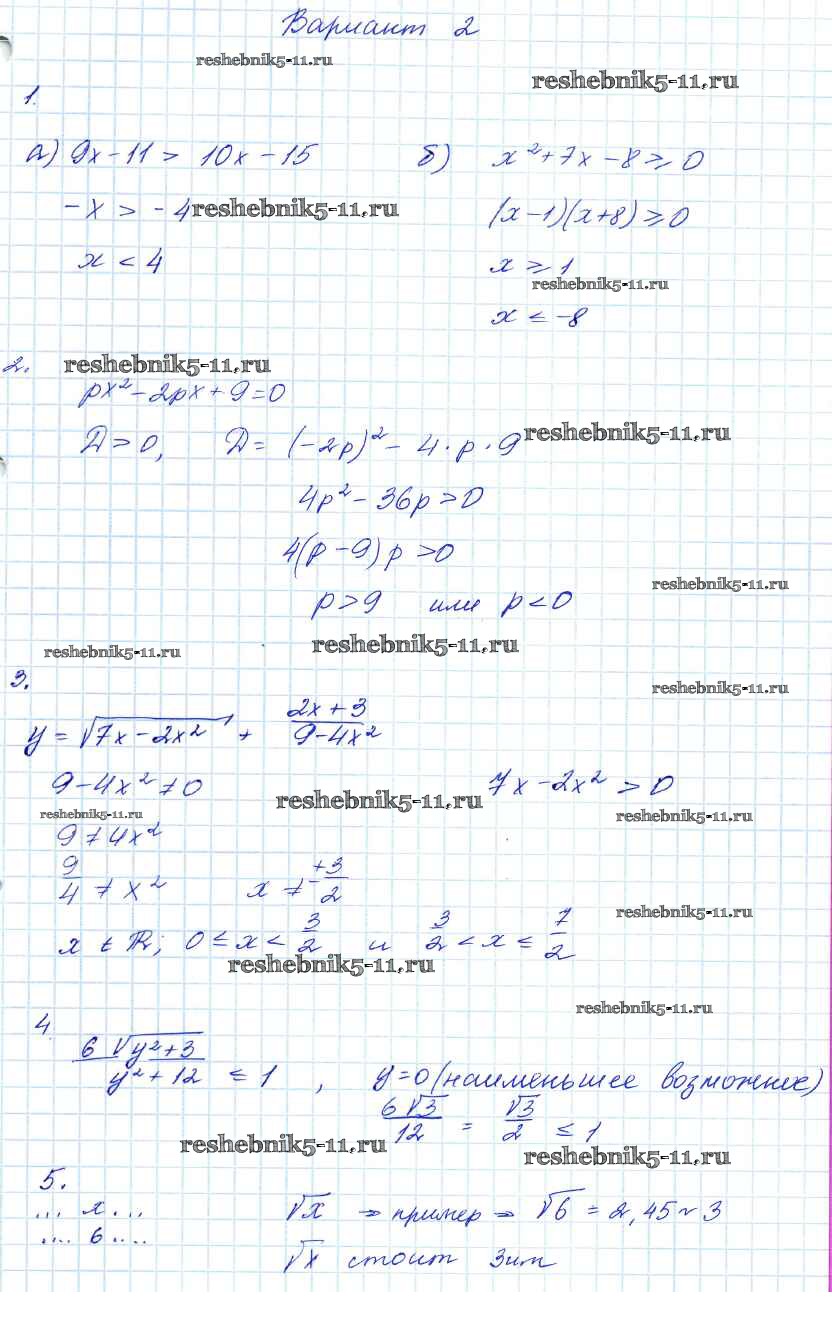 Вариант 2
reshebnik5-11.ru
reshebnik5-11.ru
1.
а) 9x - 11 > 10x - 15
б) x² + 7x - 8 ≥ 0
-x > -4
reshebnik5-11.ru
(x - 1)(x + 8) ≥ 0
x < 4
x ≥ 1
reshebnik5-11.ru
x ≤ -8
2.
reshebnik5-11.ru
px² - 2px + 9 = 0
D > 0, D = (-2p)² - 4 · p · 9
reshebnik5-11.ru
4p² - 36p > 0
4(p - 9)p > 0
reshebnik5-11.ru
p > 9 или p < 0
reshebnik5-11.ru
reshebnik5-11.ru
3.
reshebnik5-11.ru
y = √(7x - 2x²) + (2x + 3)/(9 - 4x²)
9 - 4x² ≠ 0
reshebnik5-11.ru
7x - 2x² > 0
reshebnik5-11.ru
reshebnik5-11.ru
9 ≠ 4x²
9/4 ≠ x² x ≠ ±3/2
reshebnik5-11.ru
x ∈ R; 0 ≤ x < 3/2 и 3/2 < x ≤ 7/2
reshebnik5-11.ru
reshebnik5-11.ru
4
6√(y² + 3)/(y² + 12) ≤ 1, y = 0 (наименьшее возможное)
6√3/12 = √3/2 ≤ 1
reshebnik5-11.ru
reshebnik5-11.ru
5.
... x ... √x → пример → √6 = 2,45 ~ 3
.... 6 ....
√x стоит 3им